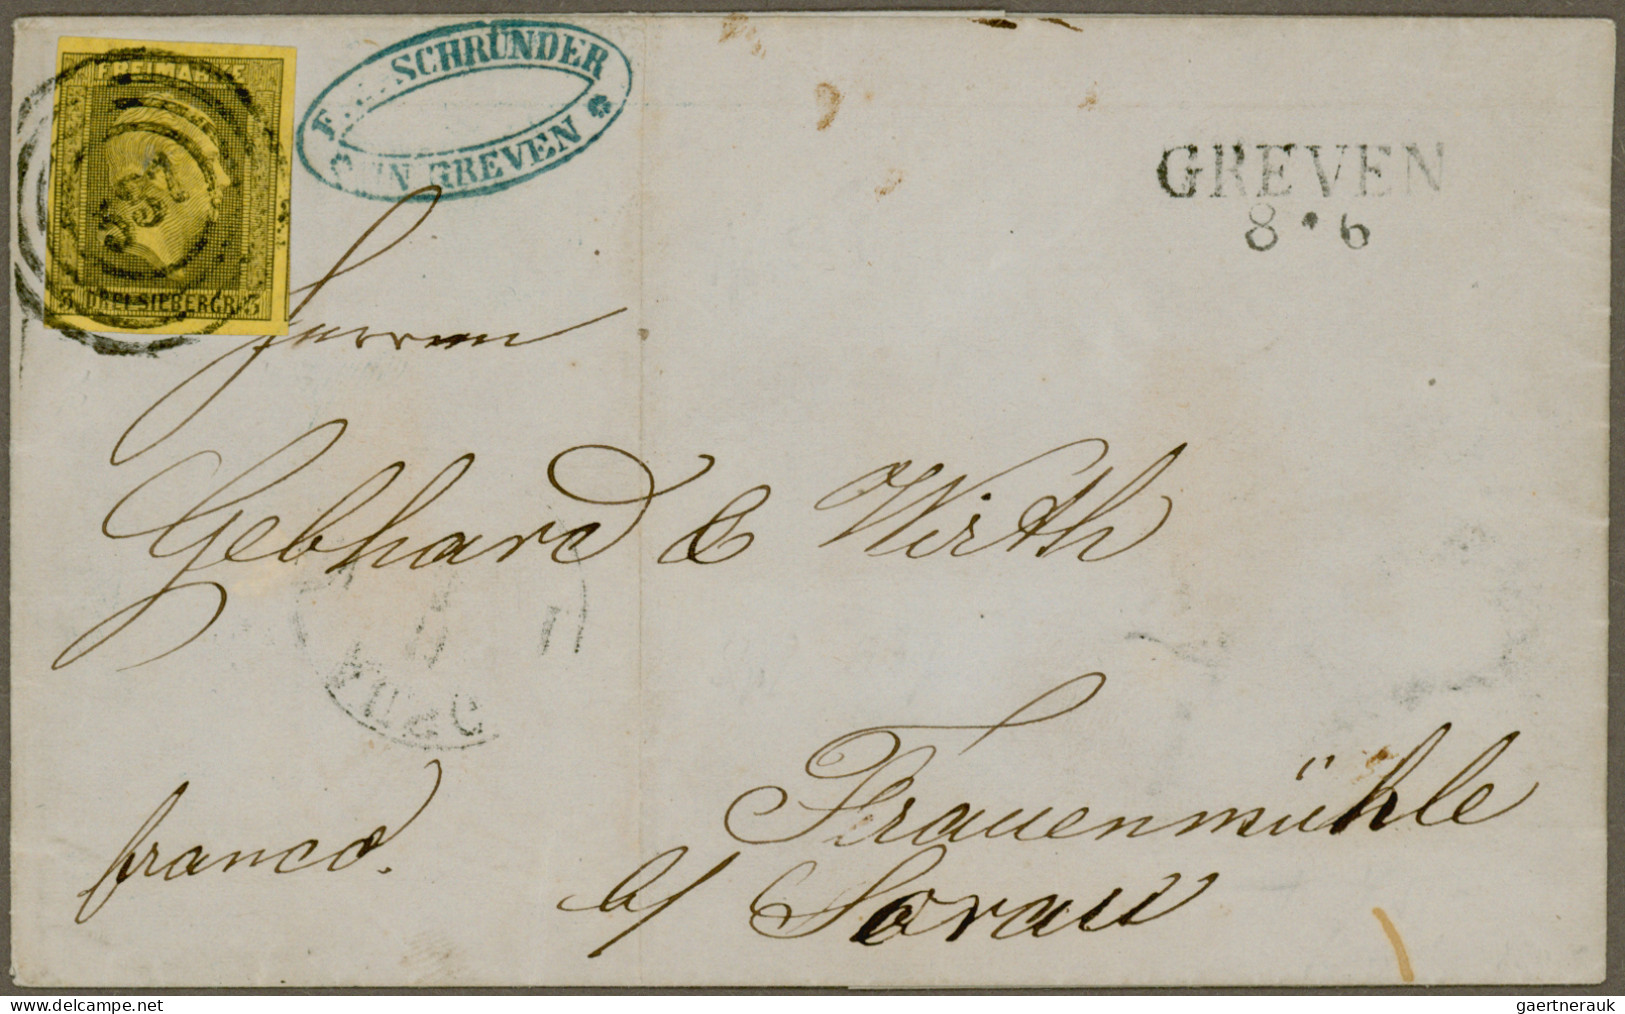 FREIMARKE
557
3 DREI SILBERGR. 3
SCHRÜNDER
IN GREVEN
GREVEN
8 * 6
Herren
Gebhard & Wirth
Frauenmühle
b/ Sorau
franco.
gaertnerauk @ delcampe.net